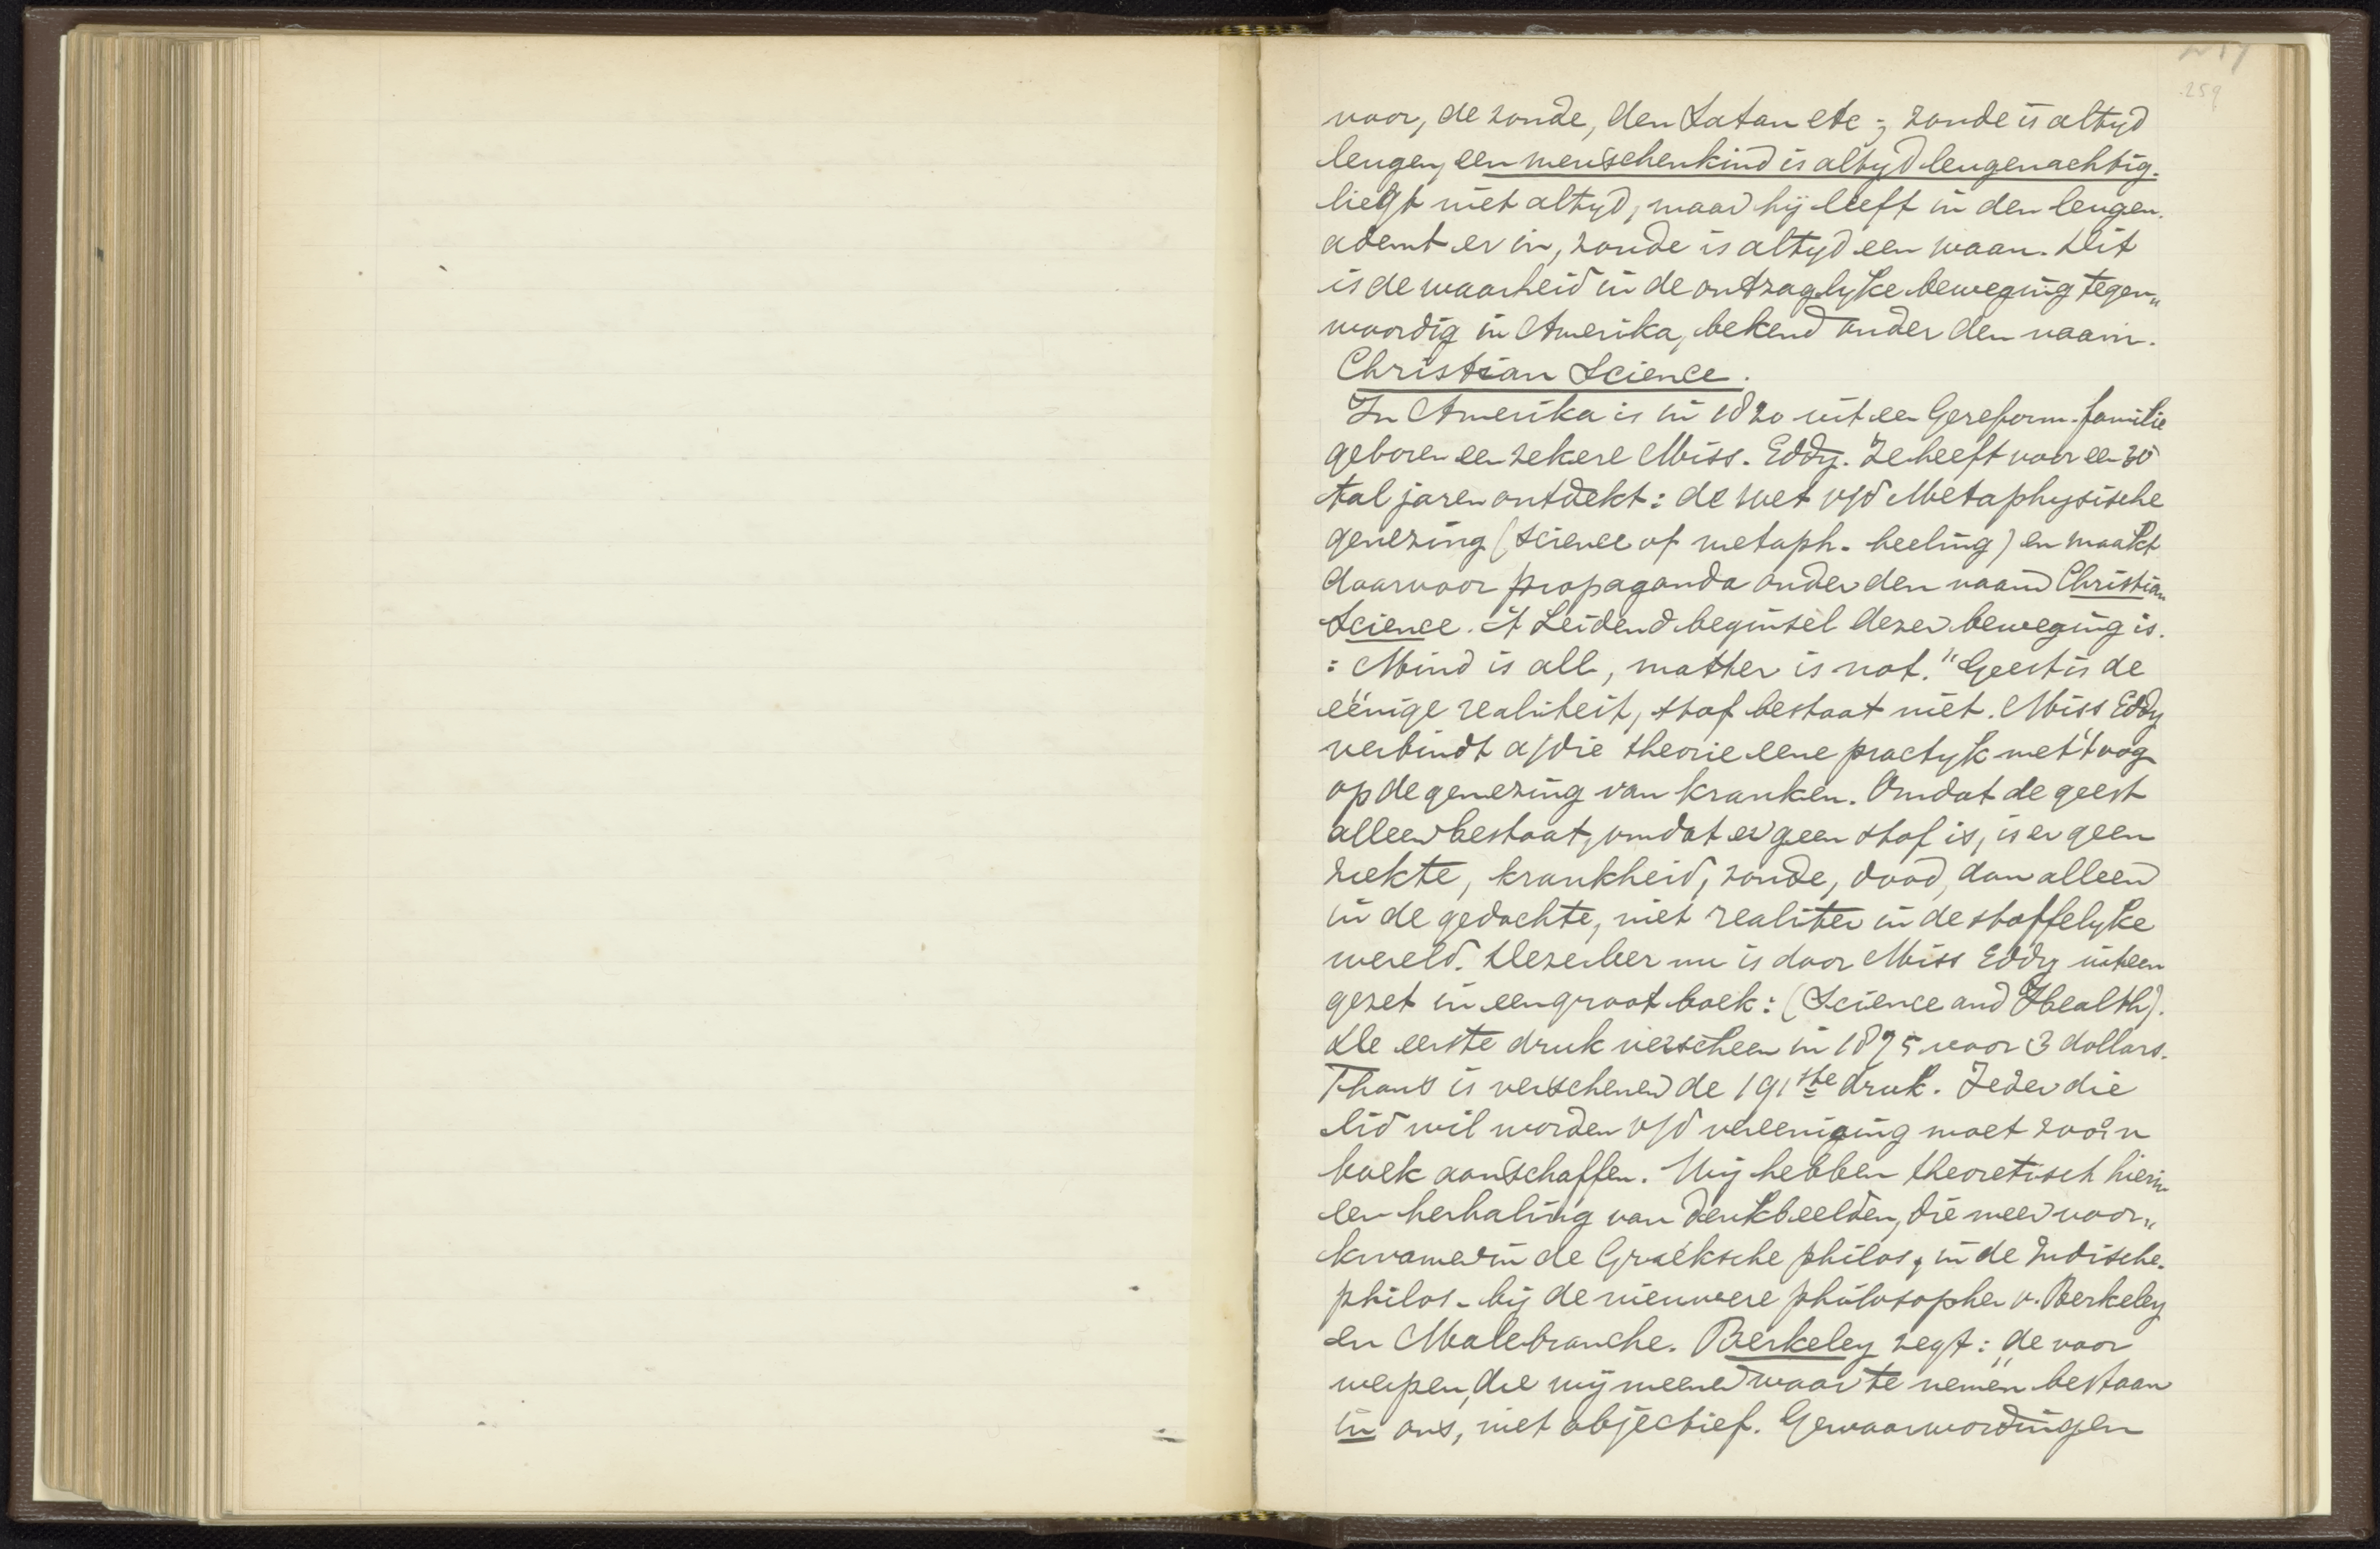 259
voor, de zonde, den Satan etc; zonde is altyd
leugen, een menschenkind is altyd leugenachtig.
liegt niet altyd, maar hij leeft in den leugen.
ademt er in, zonde is altyd een waan. Dit
is de waarheid in de ontzaglyke beweging tegen„
woordig in Amerika, bekend onder den naam.
Christian Science.
In Amerika is in 1820 uit een Gereform. familie
geboren een zekere Miss. Eddy. Ze heeft voor een 30
tal jaren ontdekt: de wet v/d Metaphysische
genezing (science of metaph. heeling) en maakt
daarvoor propaganda onder den naam Christian
Science. 't Leidend beginsel dezer beweging is.
: Mind is all, matter is not." Geest is de
eënige realiteit, stof bestaat niet. Miss Eddy
verbindt a/die theorie eene practyk met 't oog
op de genezing van kranken. Omdat de geest
alleen bestaat, omdat er geen stof is, is er geen
ziekte, krankheid, zonde, dood, dan alleen
in de gedachte, niet realiter in de stoffelyke
wereld. Deze leer nu is door Miss Eddy uiteen
gezet in een groot boek: (Science and Health).
De eerste druk verscheen in 1875 voor 3 dollars.
Thans is verschenen de 191ste druk. Ieder die
lid wil worden v/d vereeniging moet zoo'n
boek aanschaffen. Wij hebben theoretisch hierin
een herhaling van denkbeelden, die meer voor„
kwamen in de Grieksche philos, in de Indische.
philos. bij de nieuwere philosophen v. Berkeley
en Malebranche. Berkeley zegt: „de voor
werpen, die wij meenen waar te nemen bestaan
in ons, niet objectief. Gewaarwordingen